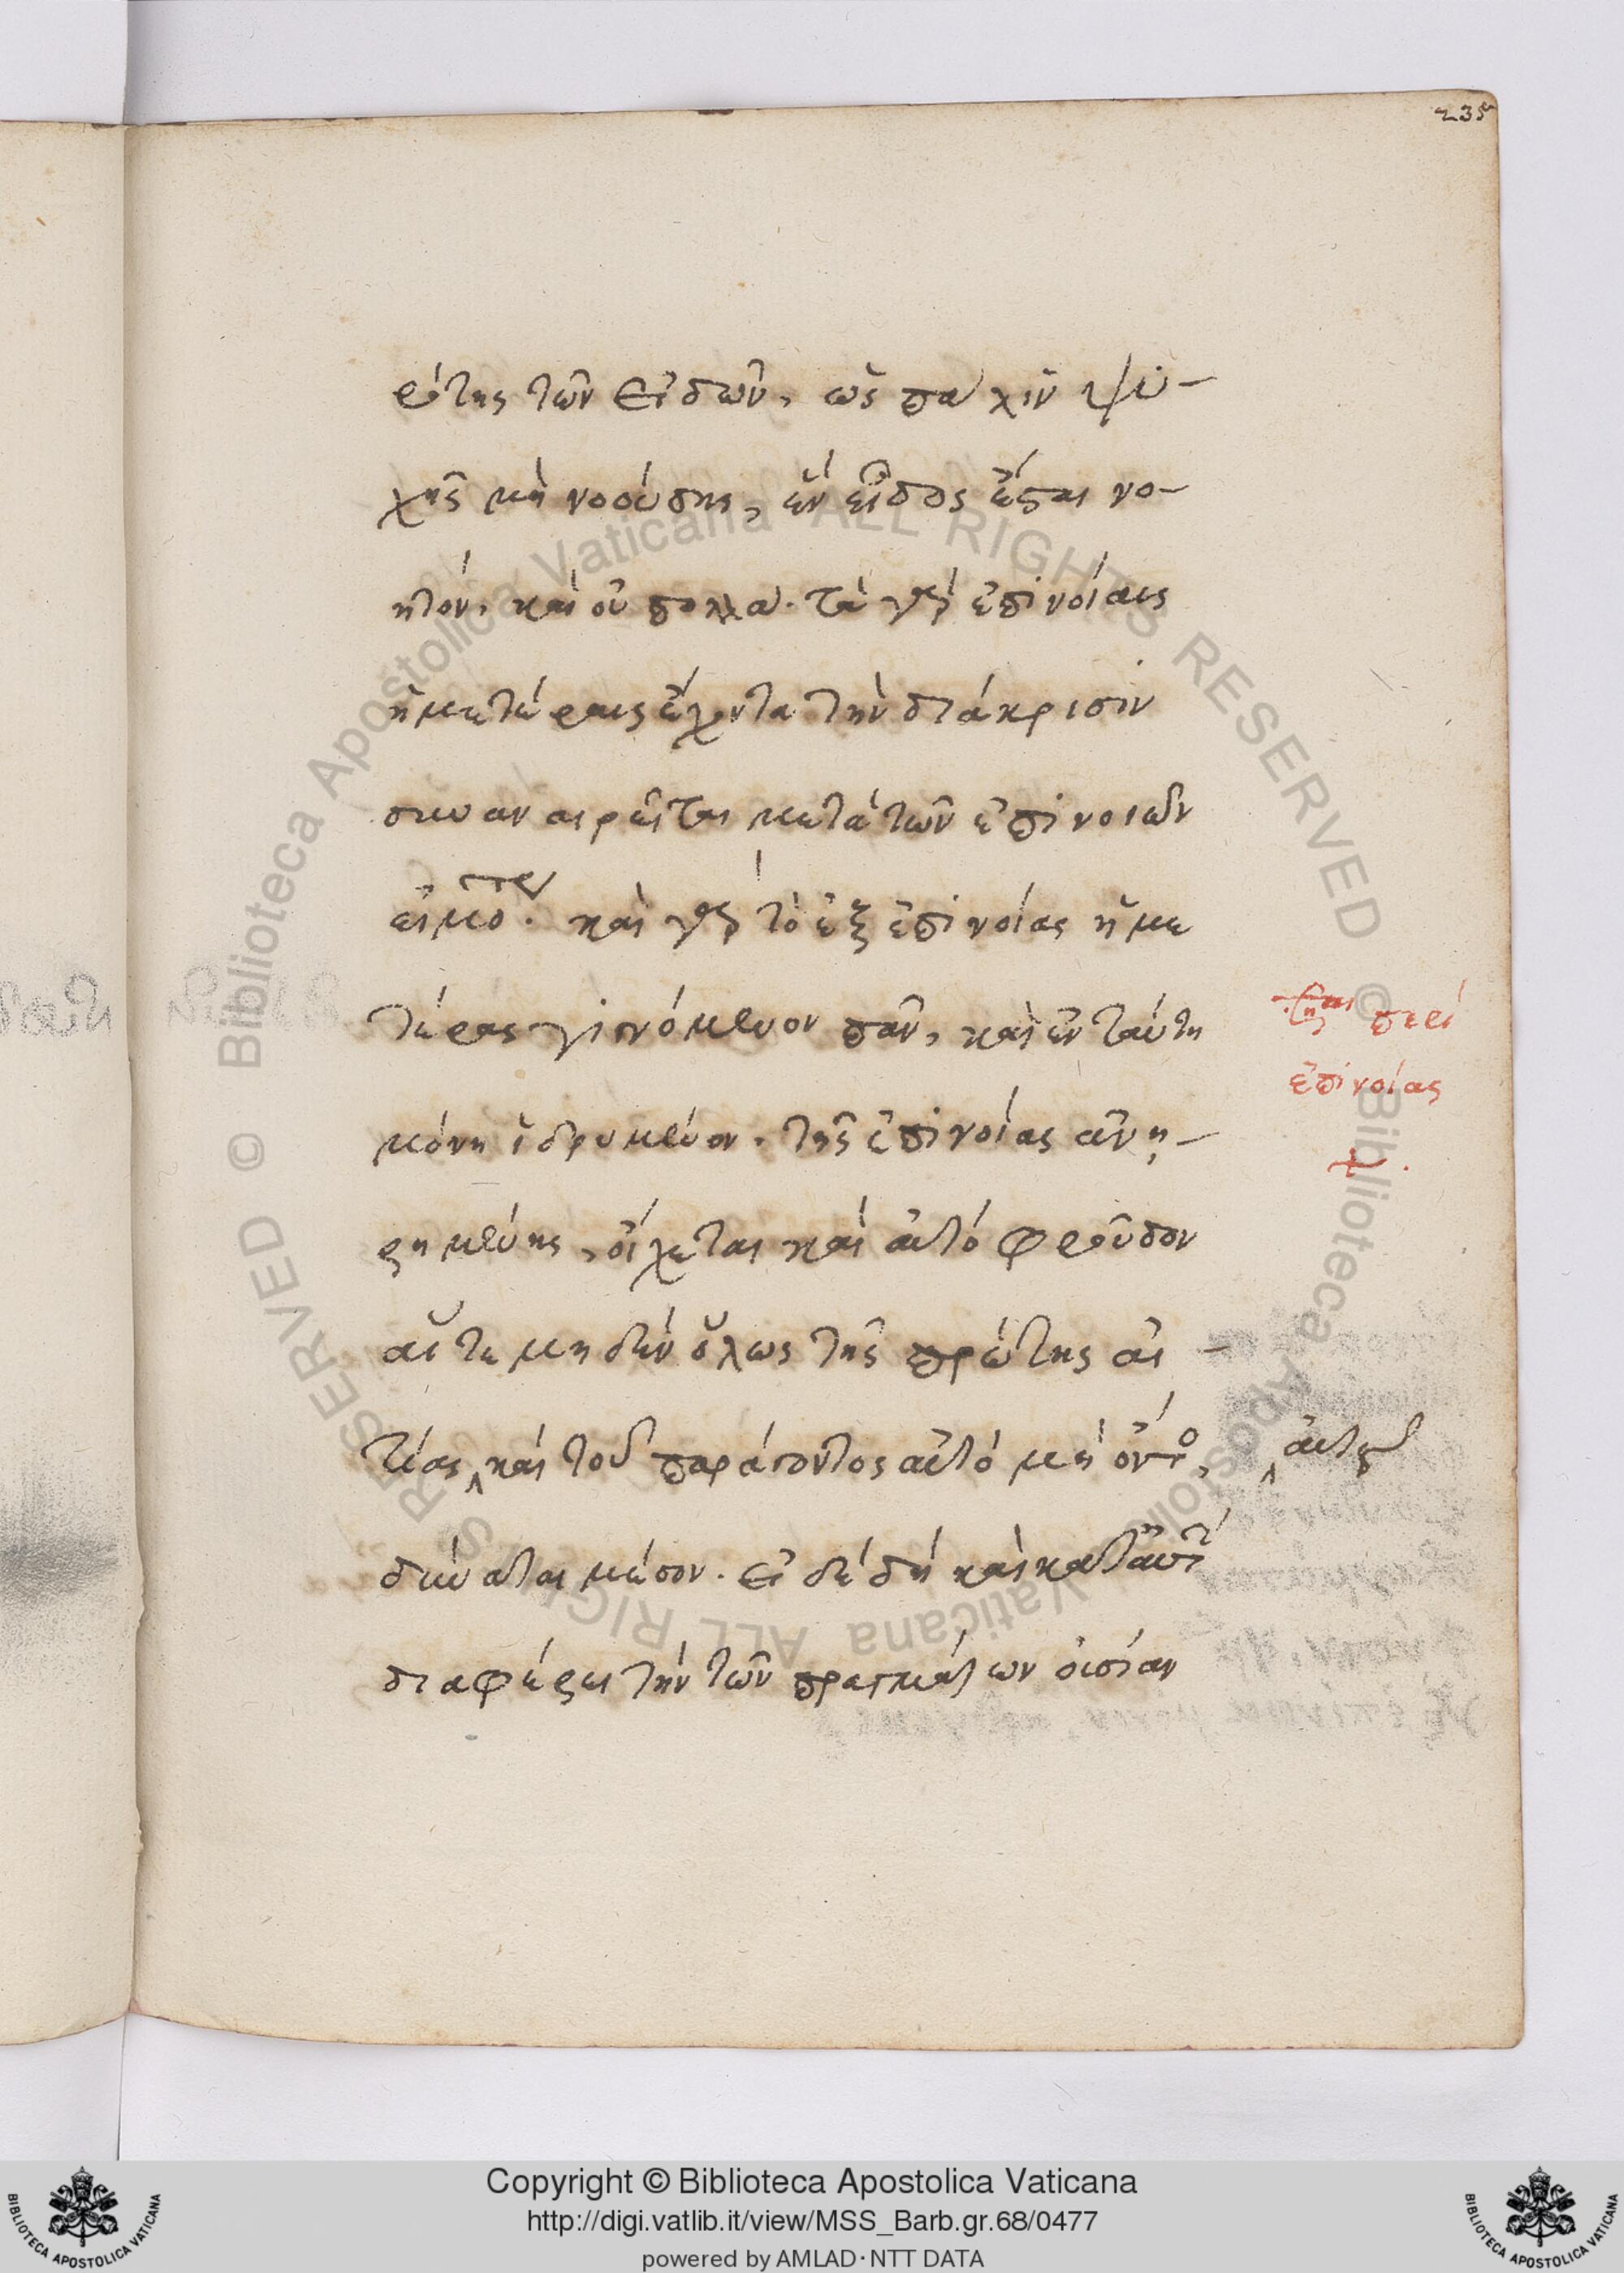 235
ρότης τῶν εἰδῶν, ὡς πάλιν ψυ-
χῆς μὴ νοούσης, ἓν εἶδος ἔσται νο-
ητόν, καὶ οὐ πολλά. τὰ γὰρ ἐπινοίαις
ἡμετέραις ἔχοντα τὴν διάκρισιν
συναναιρεῖται μετὰ τῶν ἐπινοιῶν
καὶ γὰρ τὸ ἐξ ἐπινοίας ἡμε
τέρας γιγνόμενον πᾶν, καὶ ἐν ταύτη
μόνη ἱδρυμένον. τῆς ἐπινοίας ἀνη-
ρημένης, οἴχεται καὶ αὐτὸ φροῦδον
μηδὲν ὅλως τῆς πρώτης αἰ-
τίας καὶ τοῦ παράγοντος αὐτὸ μὴ ὄντος,
δύναται μένον. εἰ δὲ δὴ καὶ κατ'
διαφέρει τὴν τῶν πραγμάτων οὐσίαν
περὶ
ἐπινοίας
Copyright © Biblioteca Apostolica Vaticana
http://digi.vatlib.it/view/MSS_Barb.gr.68/0477
powered by AMLAD·NTT DATA
BIBLIOTECA APOSTOLICA VATICANA
BIBLIOTECA APOSTOLICA VATICANA
© Biblioteca Apostolica Vaticana ALL RIGHTS RESERVED
© Biblioteca Apostolica Vaticana ALL RIGHTS RESERVED